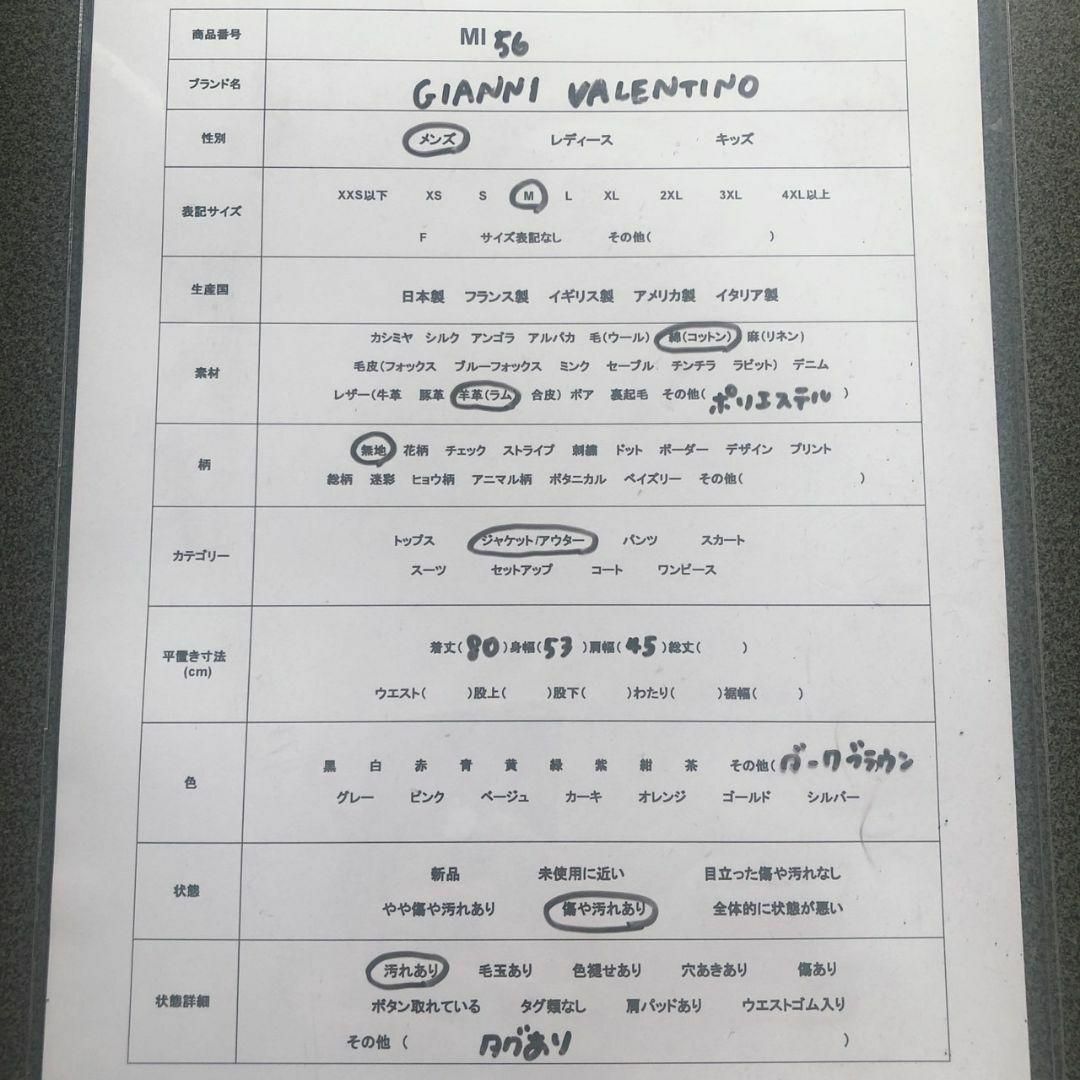 商品番号 MI 56
ブランド名 GIANNI VALENTINO
性別 メンズ レディース キッズ
XXS以下 XS S M L XL 2XL 3XL 4XL以上
表記サイズ
F サイズ表記なし その他( )
生産国 日本製 フランス製 イギリス製 アメリカ製 イタリア製
カシミヤ シルク アンゴラ アルパカ 毛(ウール) 綿(コットン) 麻(リネン)
素材 毛皮(フォックス ブルーフォックス ミンク セーブル チンチラ ラビット) デニム
レザー(牛革 豚革 羊革(ラム 合皮) ボア 裏起毛 その他( ポリエステル )
柄 無地 花柄 チェック ストライプ 刺繍 ドット ボーダー デザイン プリント
総柄 迷彩 ヒョウ柄 アニマル柄 ボタニカル ペイズリー その他( )
カテゴリー トップス ジャケット/アウター パンツ スカート
スーツ セットアップ コート ワンピース
平置き寸法 着丈( 80 )身幅( 53 )肩幅( 45 )総丈( )
(cm) ウエスト( )股上( )股下( )わたり( )裾幅( )
色 黒 白 赤 青 黄 緑 紫 紺 茶 その他( ダークブラウン
グレー ピンク ベージュ カーキ オレンジ ゴールド シルバー
状態 新品 未使用に近い 目立った傷や汚れなし
やや傷や汚れあり 傷や汚れあり 全体的に状態が悪い
汚れあり 毛玉あり 色褪せあり 穴あきあり 傷あり
状態詳細 ボタン取れている タグ類なし 肩パッドあり ウエストゴム入り
その他 ( タグあり )